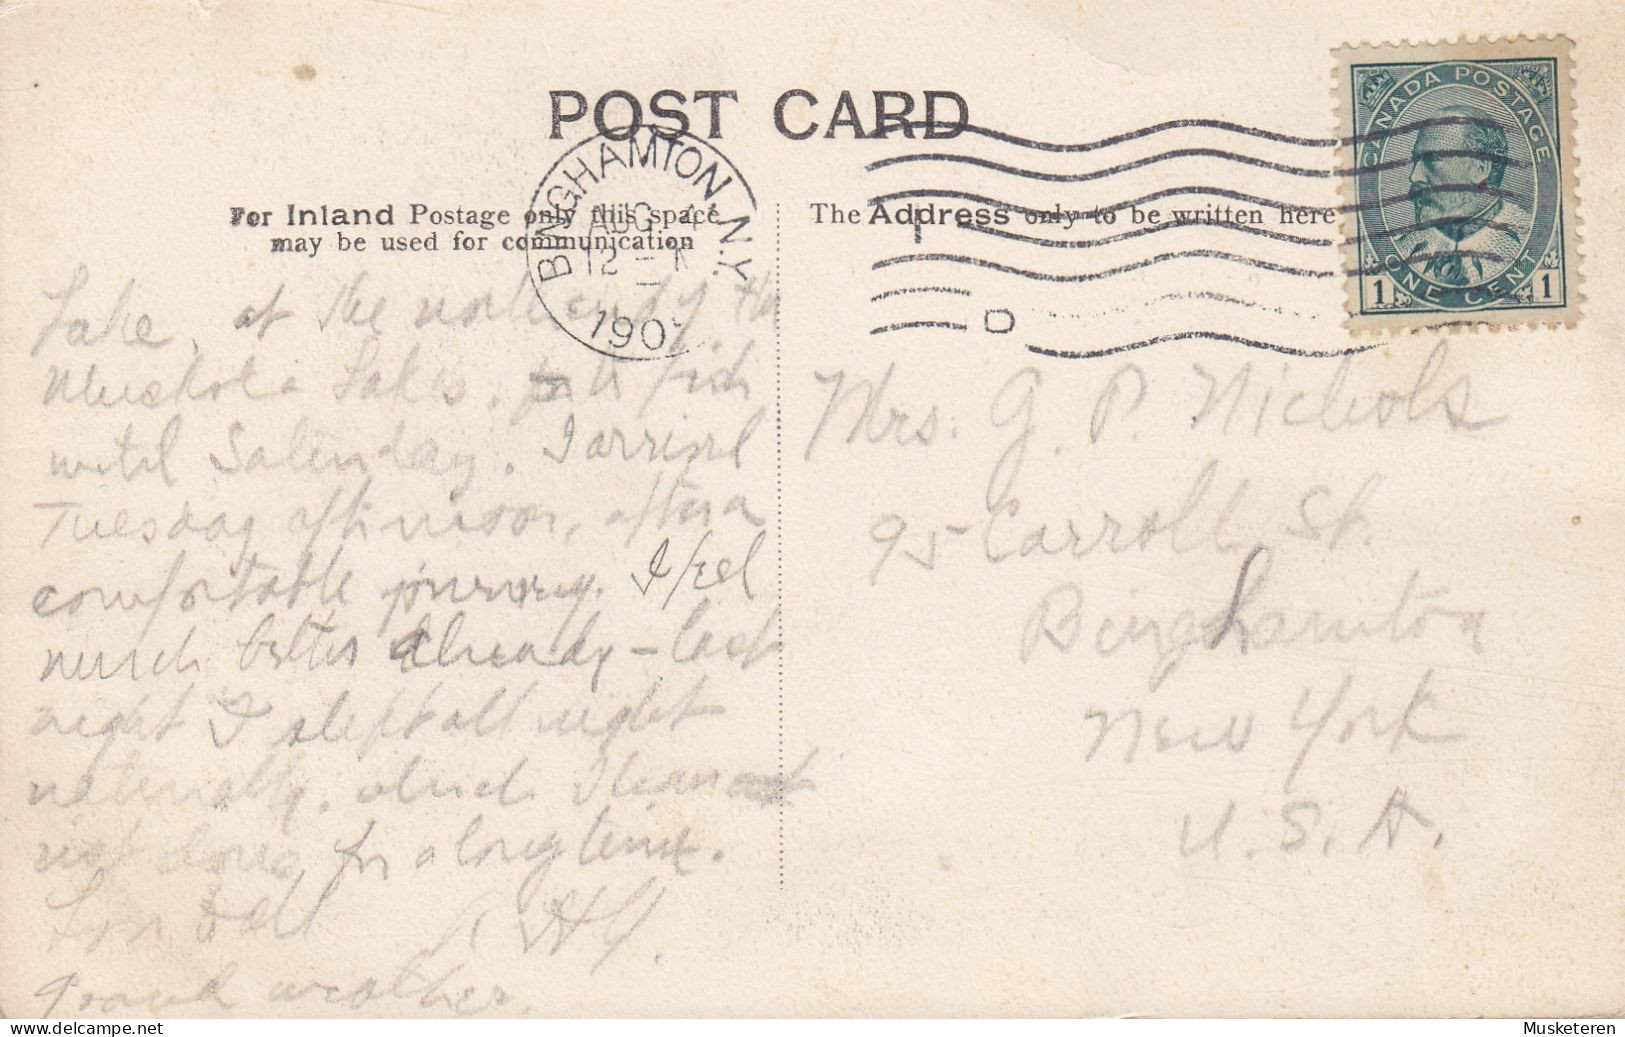 POST CARD
For Inland Postage only this space
may be used for communication
The Address only to be written here
BINGHAMTON, N.Y.
AUG
12 -
190
CANADA POSTAGE
ONE CENT
1 1
Lake, at the north end of the
Muskoka Lakes, to fish
until Saturday. I arrived
Tuesday afternoon, after a
comfortable journey. I feel
much better already - last
night I slept all night
naturally, which I have
not done for a long time.
Love to all
Grand weather.
Mrs. G. P. Nichols
95 Carroll St.
Binghamton
New York
U.S.A.
Musketeren